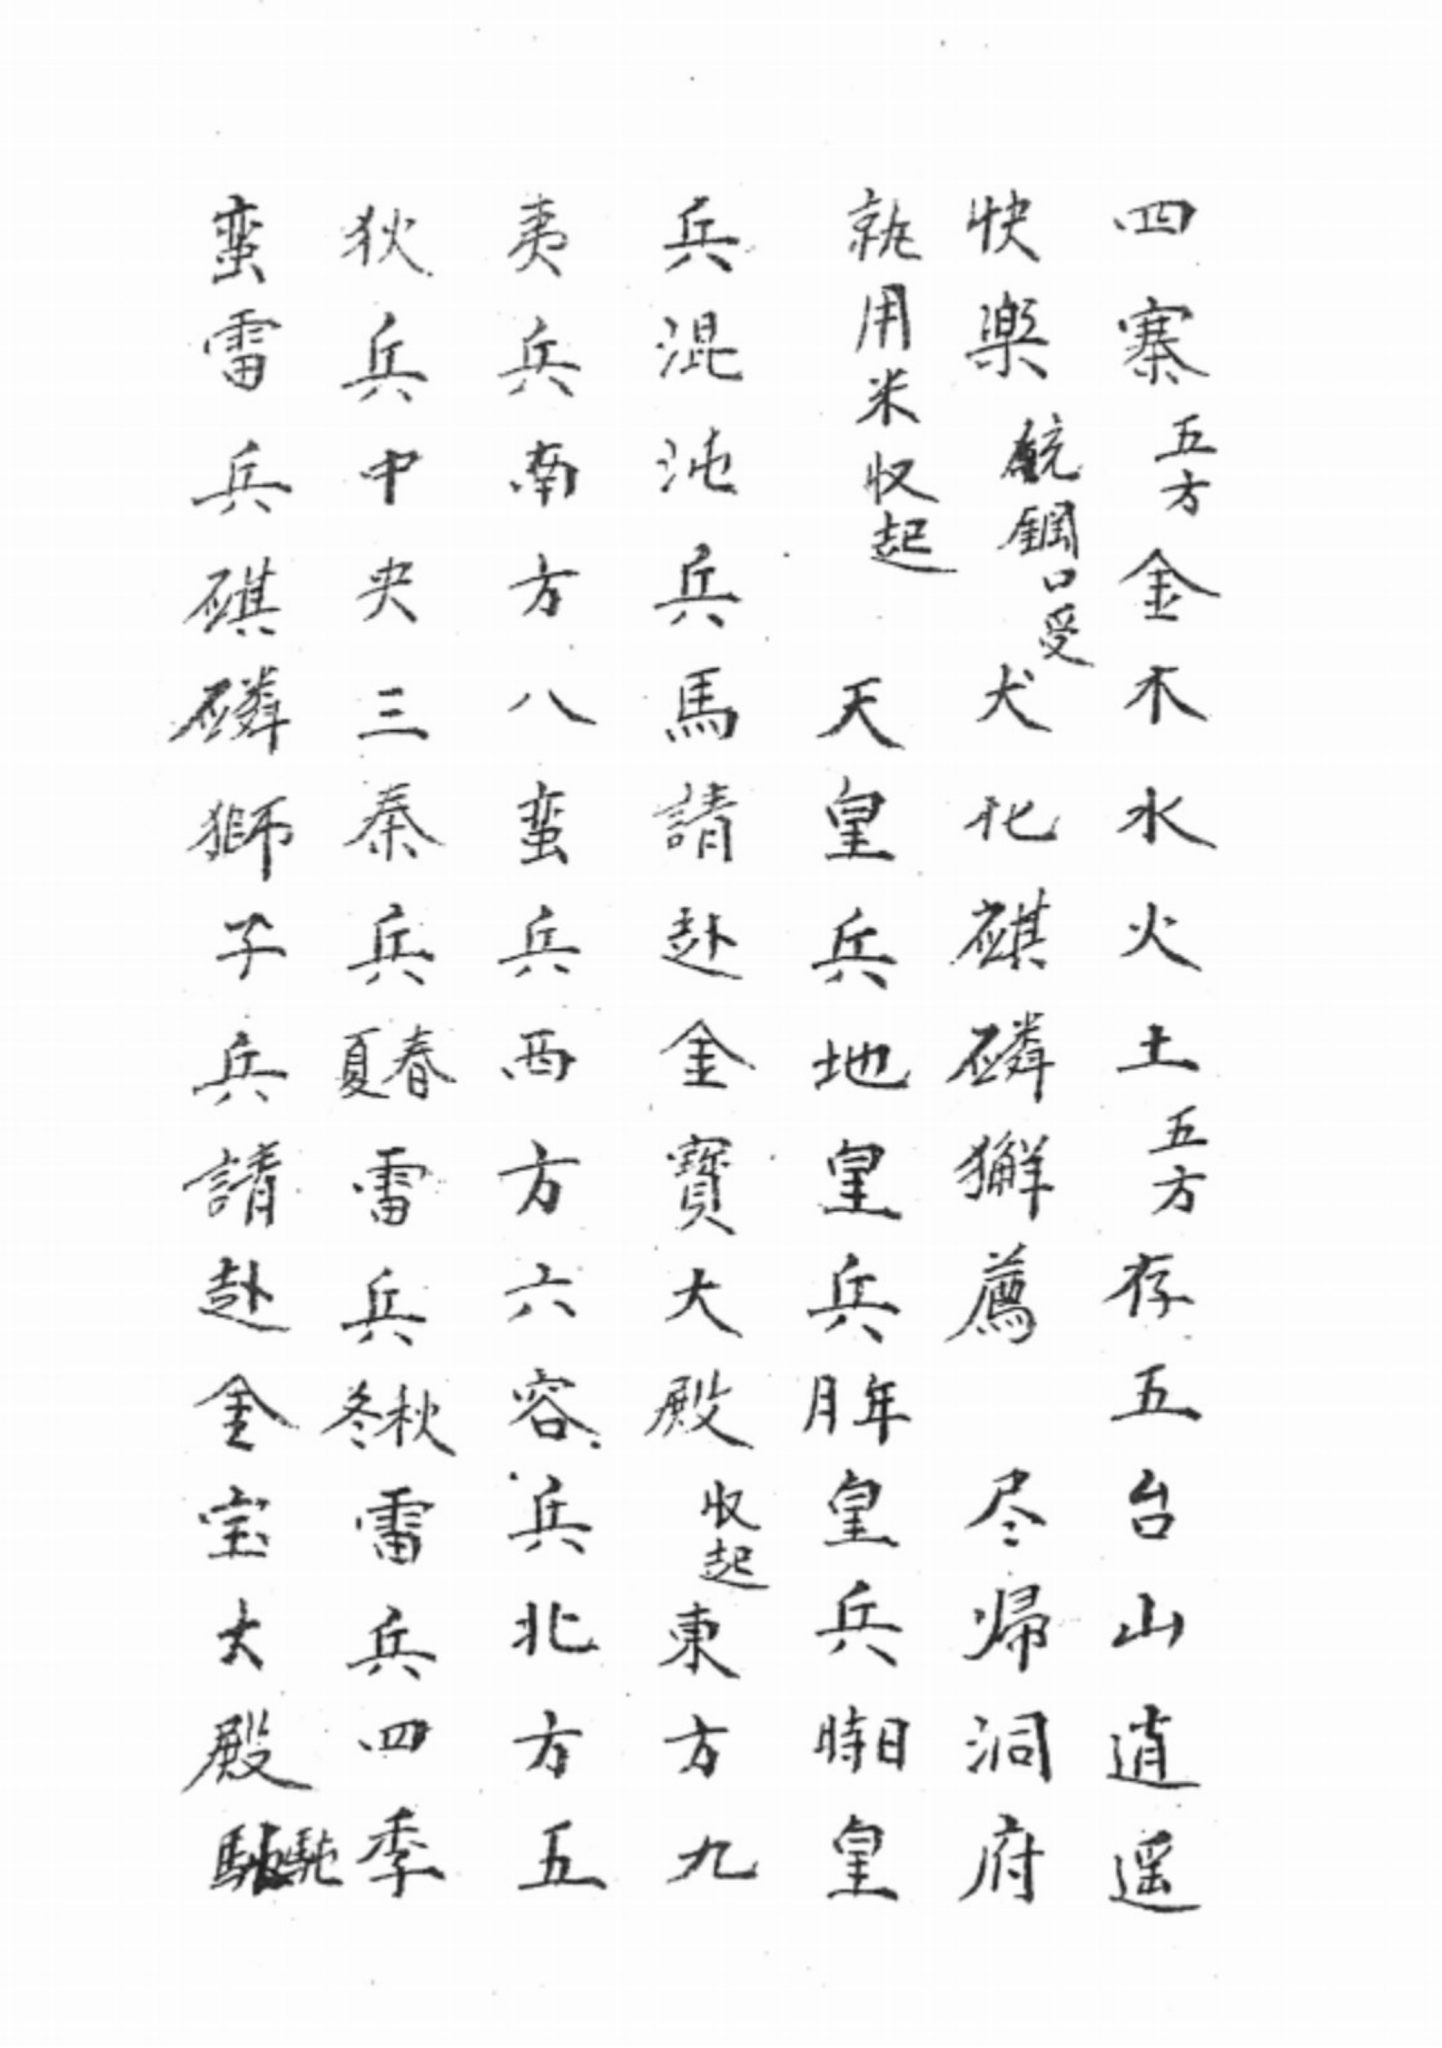 四寨五方金木水火土五方存五台山逍遥
快樂 鋼口受犬化 磷獬薦 尽帰洞府
就用米收起 天皇兵地皇兵年月皇兵日時皇
兵混沌兵馬請赴金寶大殿收起東方九
夷兵南方八蛮兵西方六容兵北方五
狄兵中央三秦兵春夏雷兵秋冬雷兵四季
蛮雷兵磷獅子兵請赴金宝大殿